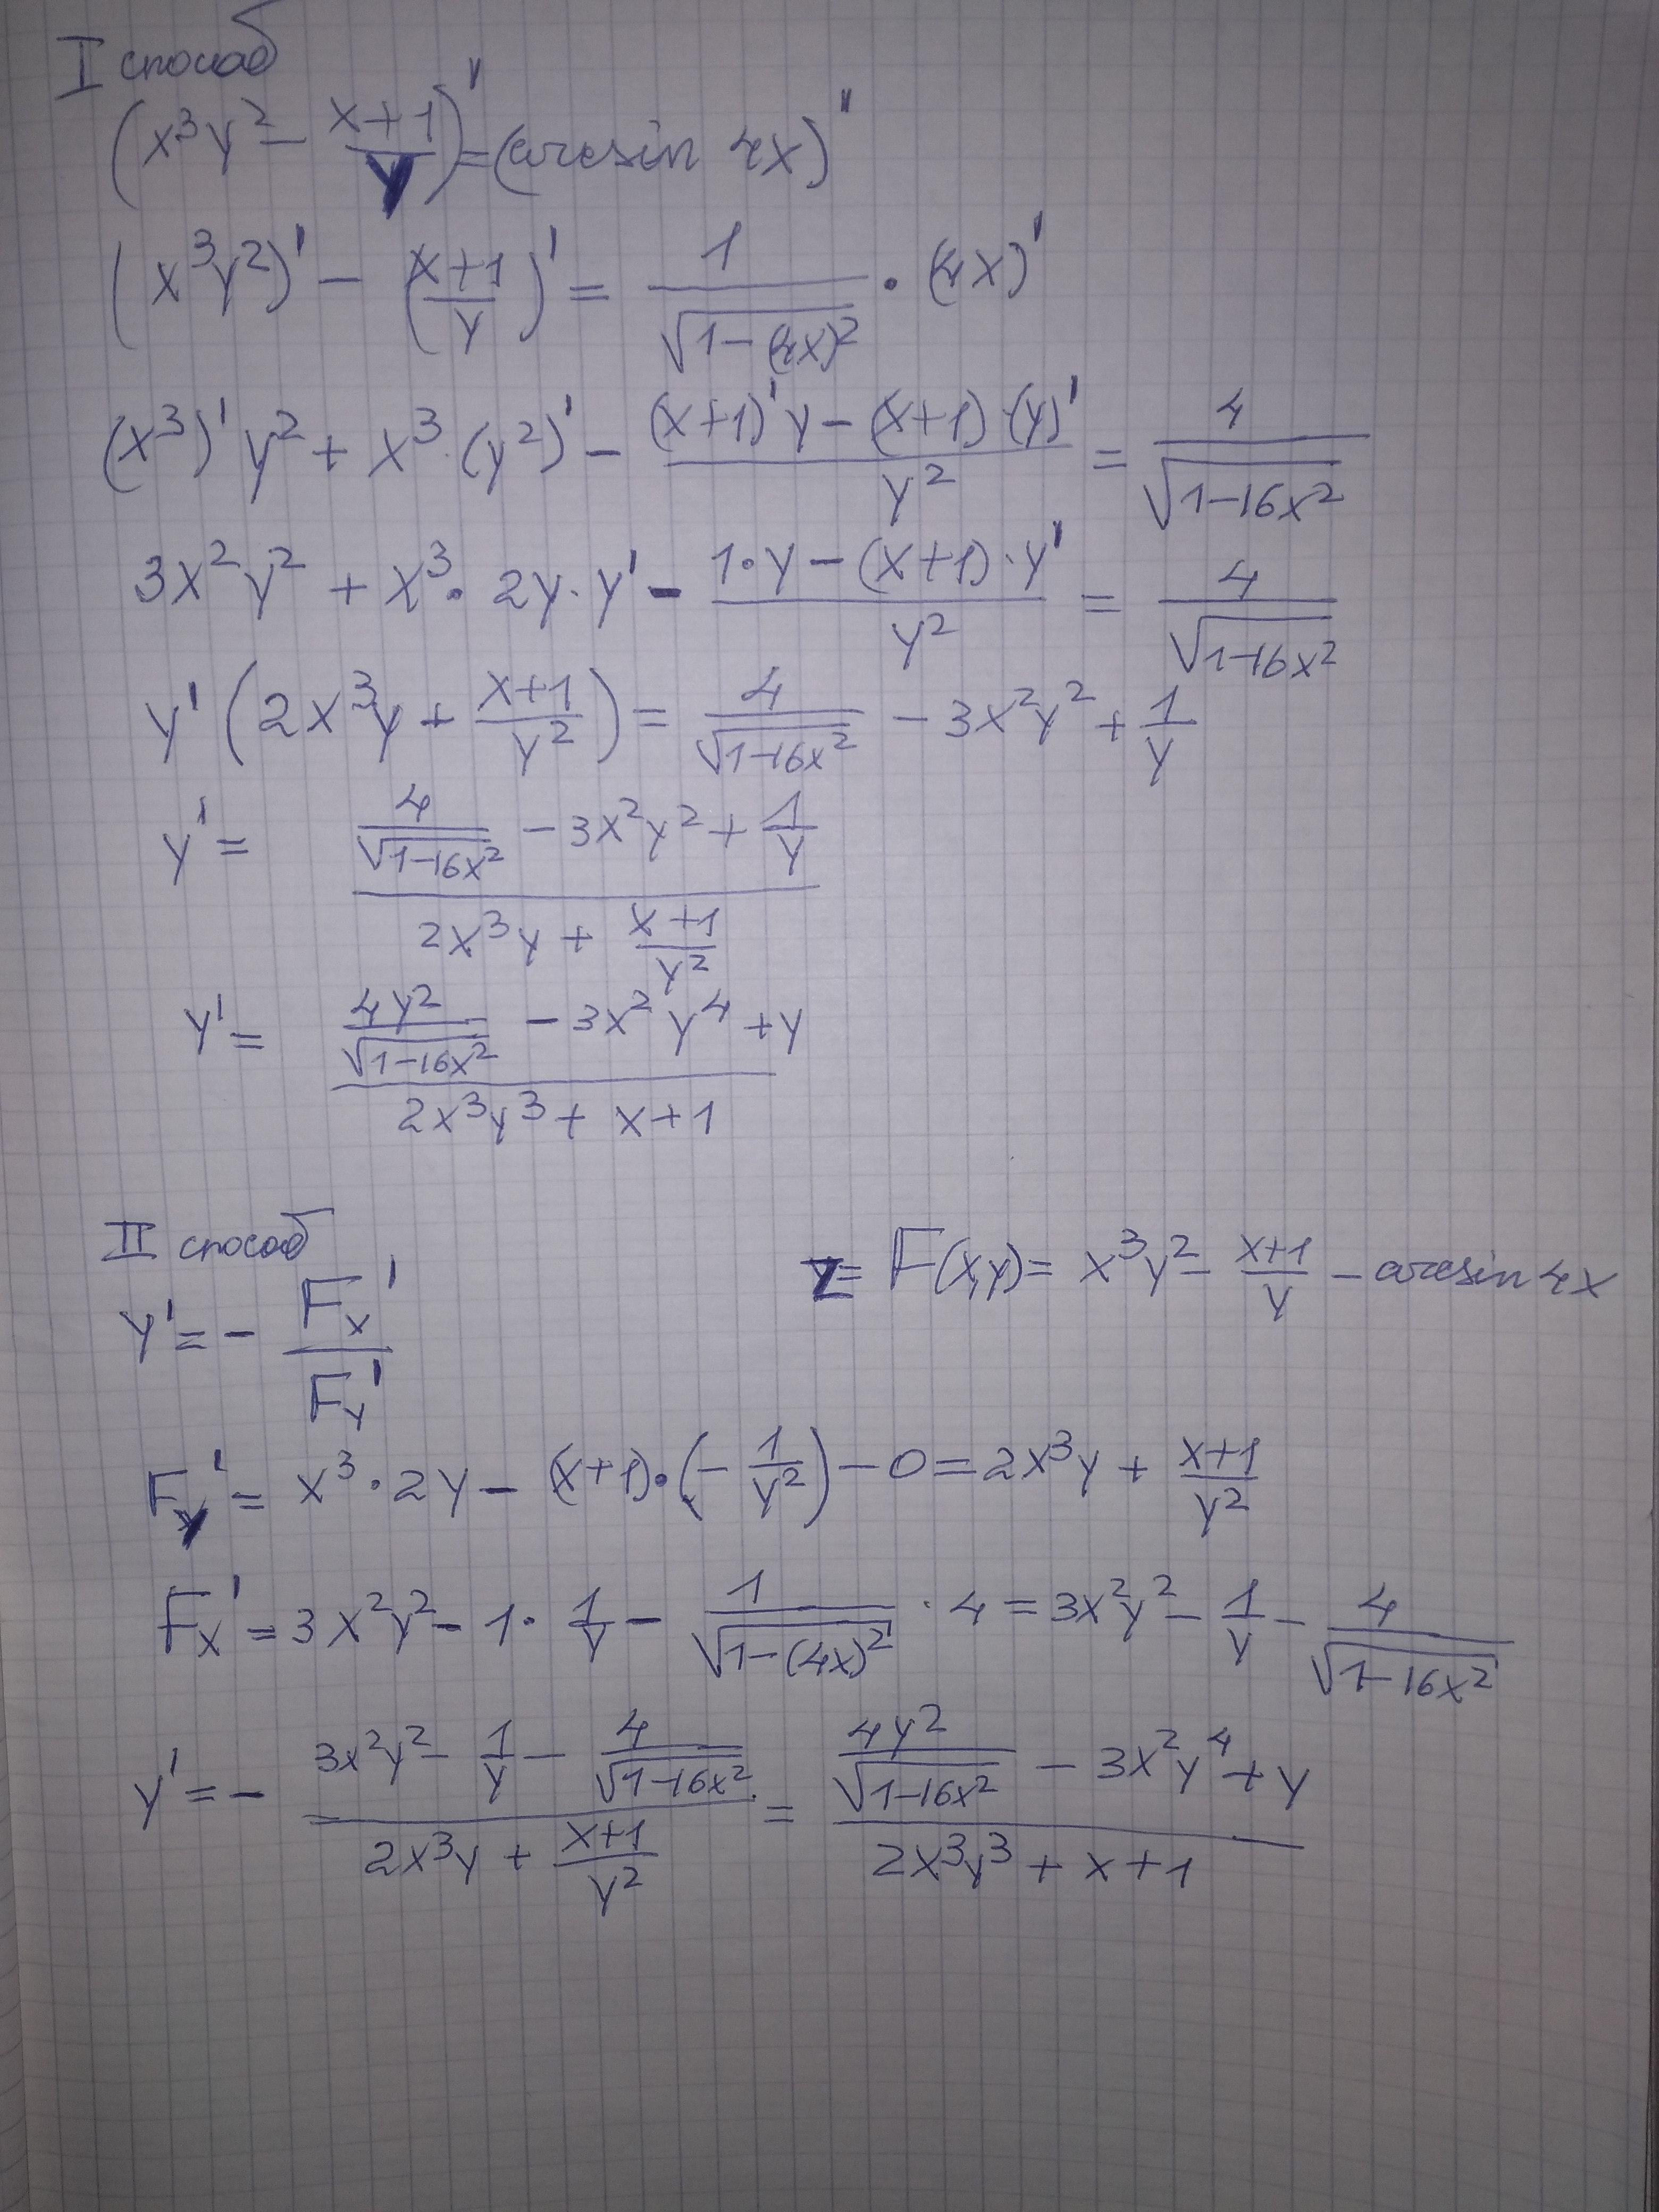 I способ
(x³y² − (x+1)/y)' = (arcsin 4x)'
(x³y²)' − ((x+1)/y)' = 1/√(1−(4x)²) · (4x)'
(x³)' y² + x³·(y²)' − ((x+1)'y − (x+1)·(y)')/y² = 4/√(1−16x²)
3x²y² + x³· 2y·y' − (1·y − (x+1)·y')/y² = 4/√(1−16x²)
y' (2x³y + (x+1)/y²) = 4/√(1−16x²) − 3x²y² + 1/y
y' = (4/√(1−16x²) − 3x²y² + 1/y)/(2x³y + (x+1)/y²)
y' = (4y²/√(1−16x²) − 3x²y⁴ + y)/(2x³y³ + x+1)
II способ
z = F(x,y) = x³y² − (x+1)/y − arcsin 4x
y' = − Fx'/Fy'
Fy' = x³·2y − (x+1)·(−1/y²) − 0 = 2x³y + (x+1)/y²
Fx' = 3x²y² − 1· 1/y − 1/√(1−(4x)²) · 4 = 3x²y² − 1/y − 4/√(1−16x²)
y' = − (3x²y² − 1/y − 4/√(1−16x²))/(2x³y + (x+1)/y²) = (4y²/√(1−16x²) − 3x²y⁴ + y)/(2x³y³ + x+1)